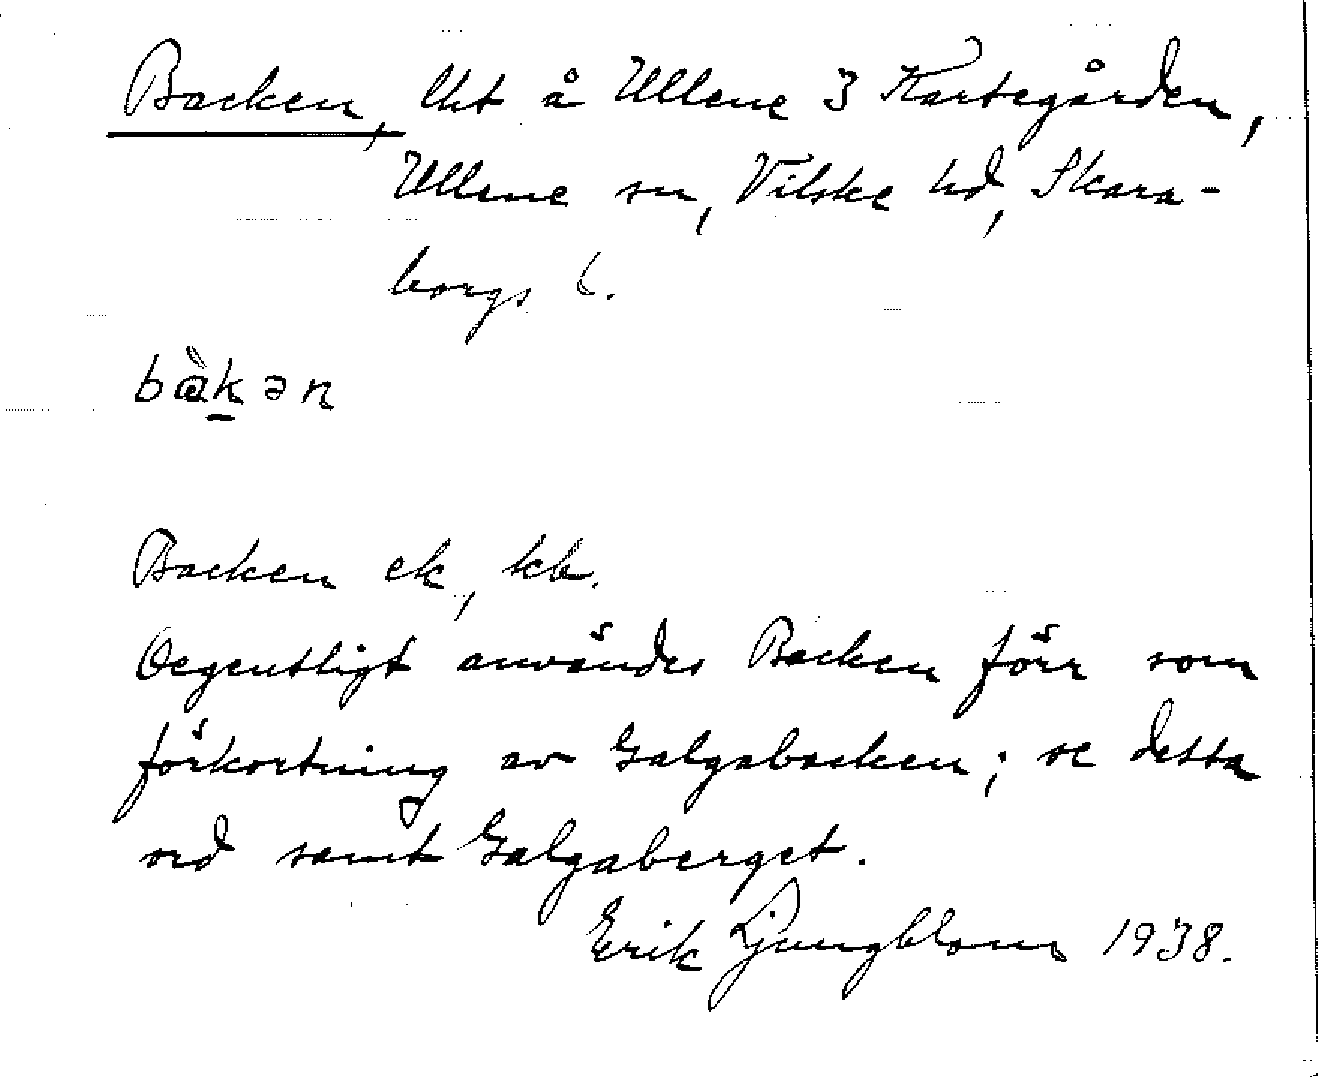 Backen, lht å Ullene 3 Kartegården,
Ullene sn, Vilske hd, Skara-
borgs l.
bàkən
Backen ek, kb.
Oegentligt användes Backen förr som
förkortning av Galgabacken; se detta
ord samt Galgaberget.
Erik Ljungblom 1938.